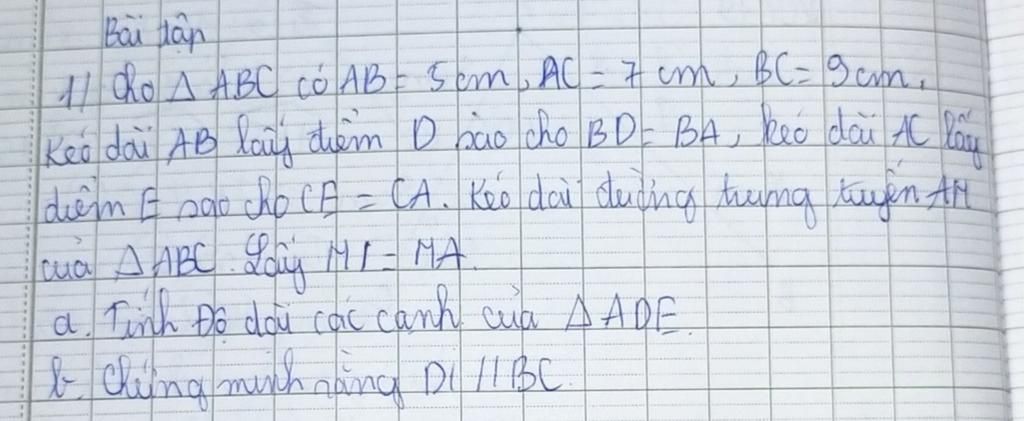 Bài tập
1// Cho Δ ABC có AB = 5 cm, AC = 7 cm, BC = 9 cm.
Kéo dài AB lấy điểm D sao cho BD = BA, kéo dài AC lấy
điểm E sao cho CE = CA. Kéo dài đường trung tuyến AM
của Δ ABC. Lấy MI = MA.
a. Tính Độ dài các cạnh của Δ ADE.
b. Chứng minh rằng DI // BC.